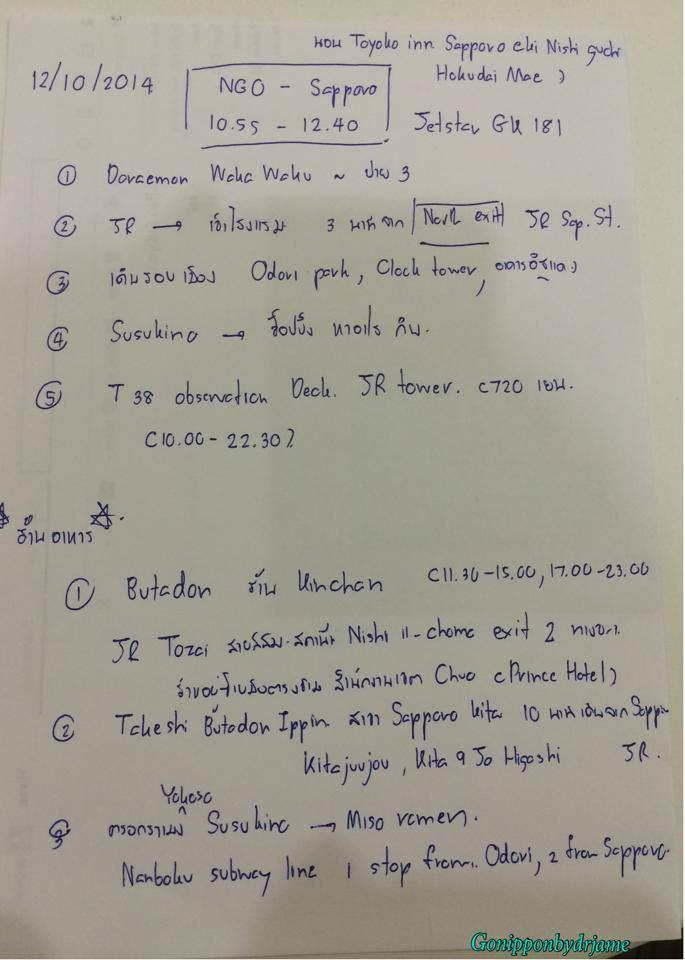 นอน Toyoko inn Sapporo eki Nishi guchi
Hokudai Mae )
12/10/2014
NGO - Sapporo
10.55 - 12.40
Jetstar GK 181
① Doraemon Waku Waku ~ บ่าย 3
② JR → เข้าโรงแรม 3 นาทีจาก North exit JR Sap. St.
③ เดินรอบเมือง Odori park, Clock tower, อาคารอิฐแดง
④ Susukino → ช็อปปิ้ง หาอะไร กิน.
⑤ T 38 observation Deck. JR tower. (720 เยน.
(10.00 - 22.30)
ร้านอาหาร
① Butadon ร้าน Kinchan (11.30-15.00, 17.00-23.00
JR Tozai สายสีส้ม. สถานี Nishi 11-chome exit 2
สำนักงานเขต Chuo (Prince Hotel)
② Takeshi Butadon Ippin สาขา Sapporo kita 10 นาที เดินจาก
Kitajuujou, Kita 9 Jo Higashi JR.
Yokoso
③ ตรอกราเมง Susukino → Miso ramen.
Nanboku subway line 1 stop from Odori, 2 from Sapporo.
Gonipponbydrjame